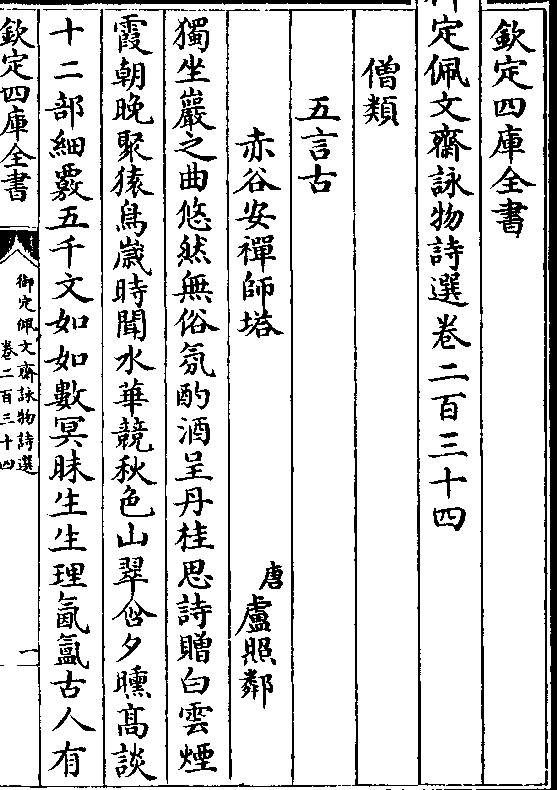 欽定四庫全書
定佩文齋詠物詩選卷二百三十四
僧類
五言古
赤谷安禪師塔 唐盧照鄰
獨坐巖之曲悠然無俗氛酌酒呈丹桂思詩贈白雲煙
霞朝晚聚猿鳥歲時聞水華競秋色山翠含夕曛髙談
十二部細覈五千文如如數冥昧生生理氤氳古人有
欽定四庫全書
御定佩文齋詠物詩選
卷二百三十四
一